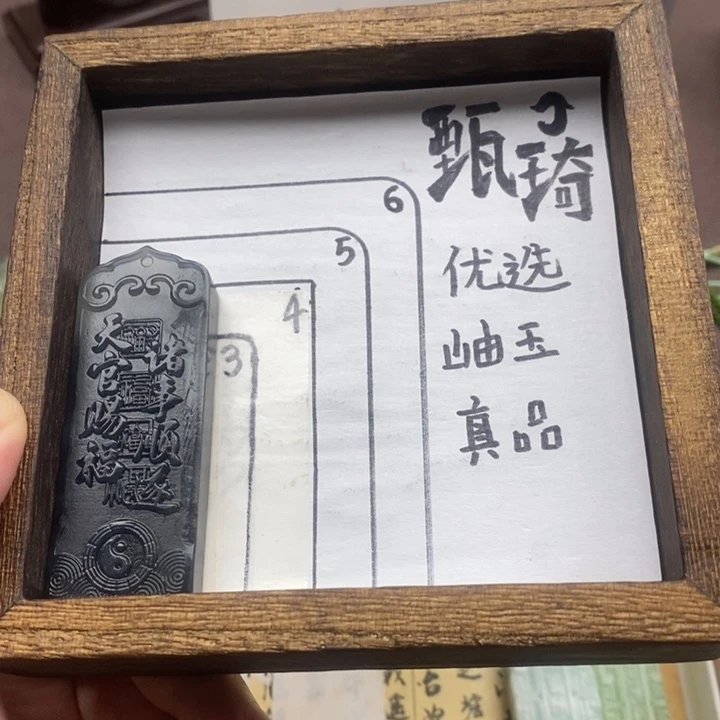 甄琦
6
优选
5
岫玉
4
真品
3
天官赐福
诸事顺遂